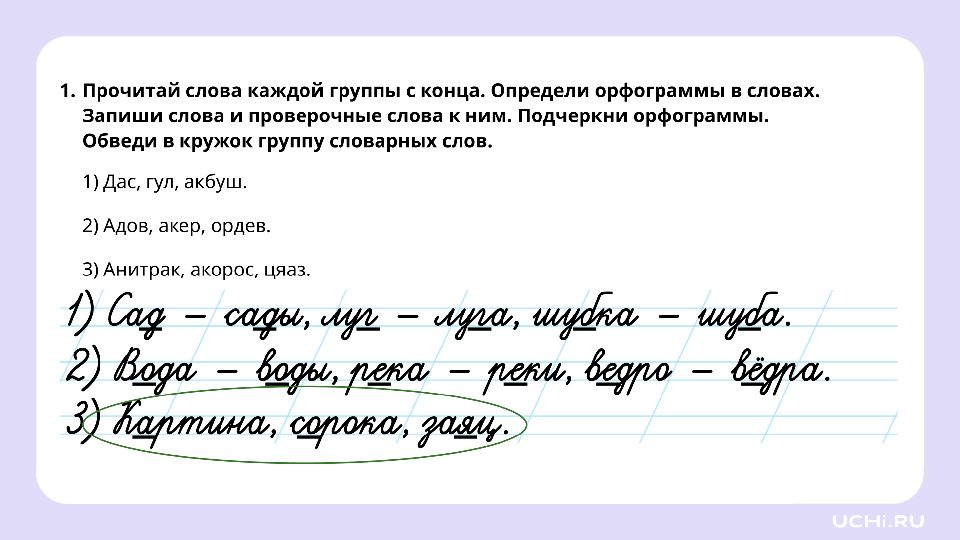 1. Прочитай слова каждой группы с конца. Определи орфограммы в словах.
Запиши слова и проверочные слова к ним. Подчеркни орфограммы.
Обведи в кружок группу словарных слов.
1) Дас, гул, акбуш.
2) Адов, акер, ордев.
3) Анитрак, акорос, цяаз.
1) Сад – сады, луг – луга, шубка – шуба.
2) Вода – воды, река – реки, ведро – вёдра.
3) Картина, сорока, заяц.
UCHi.RU